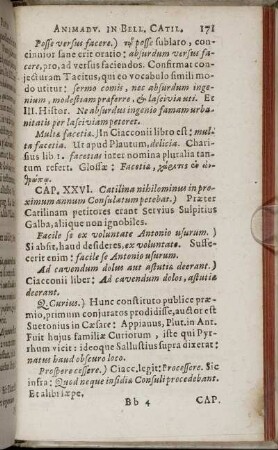 ANIMADV. IN BELL. CATIL. 171
Posse versus facere.) τῷ posse sublato, con-
cinnior sane erit oratio; absurdum versus fa-
cere, pro, ad versus faciendos. Confirmat con-
jecturam Tacitus, qui eo vocabulo simili mo-
do utitur: sermo comis, nec absurdum inge-
nium, modestiam praferre, & lasciviâ uti. Et
III. Histor. Ne absurdus ingenio famam urba-
nitatis per lasciviam petoret.
Multa facetia. In Ciacconii libro est: mul-
ta facetia. Ut apud Plautum, delicia. Cha-
sius lib I. facetias inter nomina pluralia tan-
tum refert. Glossæ: Facetia,
CAP. XXVI. Catilina nihilominus in pro-
ximum annum Consulatum petebat.) Præter
Catilinam petitores erant Servius Sulpitius
Galba, aliique non ignobiles.
Facile se ex voluntate Antonio usurum.)
Si absit, haud desideres, ex voluntate. Suffe-
cerit enim: facile se Antonio usurum.
Ad cavendum dolus aut astutia deerant.)
Ciacconii liber: Ad cavendum dolos, astutia
deerant.
Q. Curius.) Hunc constituto publice præ-
mio, primum conjuratos prodidisse, auctor est
Suetonius in Cæsare: Appianus, Plut. in Ant.
Fuit hujus familiæ Curiorum, iste qui Pyr-
rhum vicit: ideoque Sallustius supra dixerat:
natus haud obscuro loco.
Prospere cessere.) Ciacc. legit: Processere. Sic
infra: Quod neque insidiæ Consuli procedebant.
Et alibi sæpe.
Bb 4 CAP.